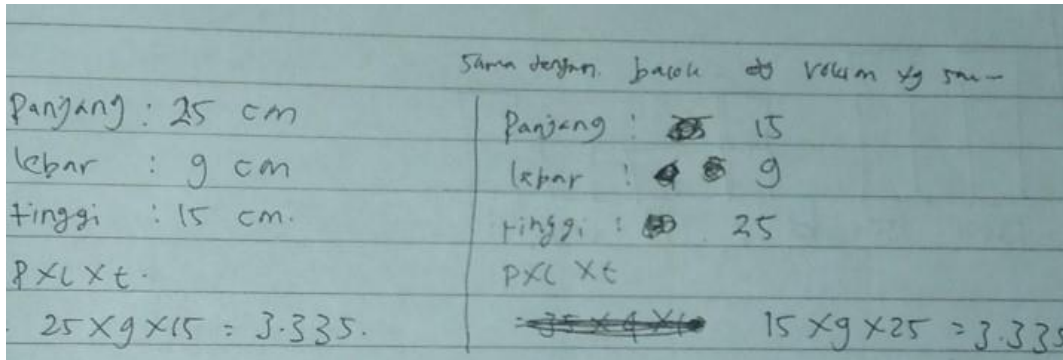 sama dengan. balok volum yg
Panjang : 25 cm
lebar : 9 cm
tinggi : 15 cm.
P x L x t.
25 x 9 x 15 = 3.335.
Panjang : 15
lebar : 9
tinggi : 25
P x L x t
15 x 9 x 25 = 3.335